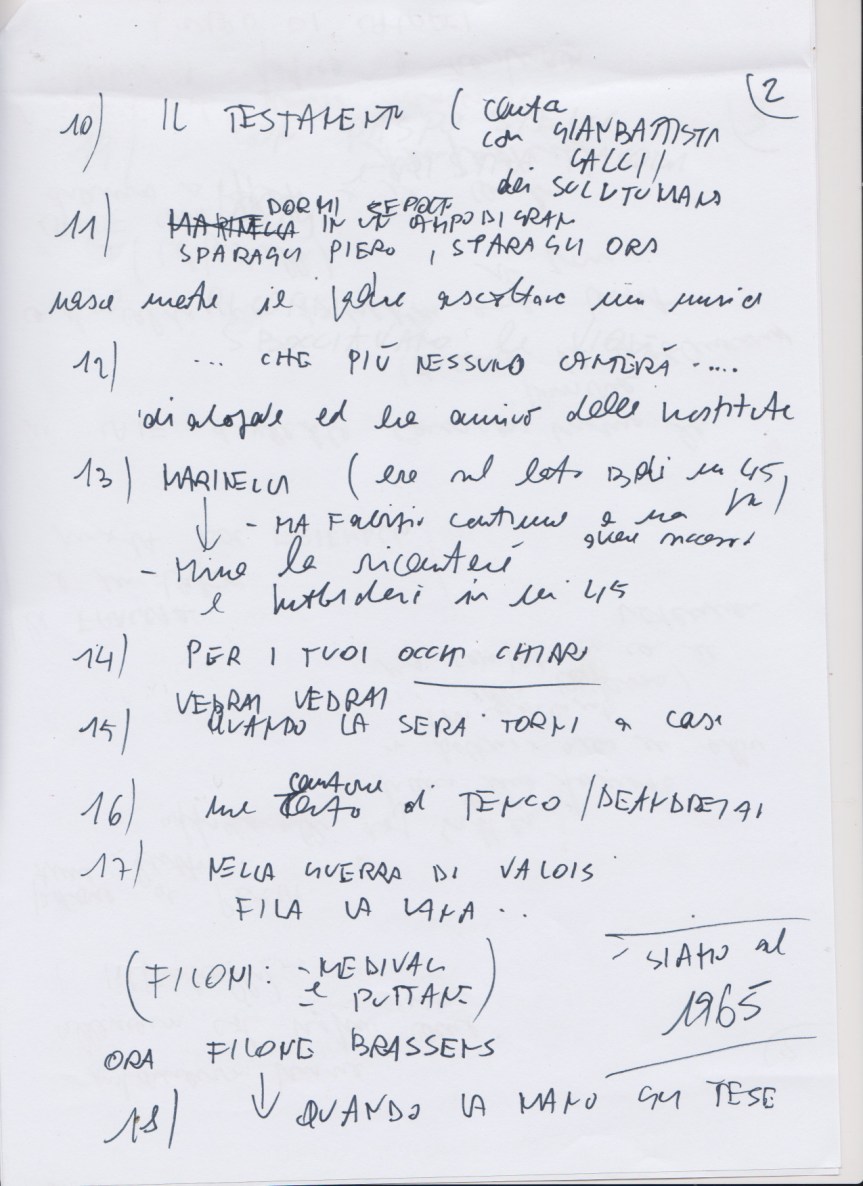 2
10) IL TESTAMENTO (canta
con GIANBATTISTA
GALCI/
dei
11) DORMI SEPOLT
MARINELLA IN UN CAMPO DI GRAN
SPARAGLI PIERO, SPARAGLI ORA
nasce mentre il padre ascoltava una musica
12) ... CHE PIÙ NESSUNO CANTERÀ .....
ed ha amico delle prostitute
13) MARINELLA (era sul lato B di un 45
- MA Fabrizio continua a non
avere successo
- Mina la ricanterà
e in un 45
14) PER I TUOI OCCHI CHIARI
VEDRAI VEDRAI
15) QUANDO LA SERA TORNI a casa
16) canzone
me di TENCO / DEANDRE
17) NELLA GUERRA DI VALOIS
FILA LA LANA ..
(FILONI: - MEDIVALI
e PUTTANE)
SIAMO al
1965
ORA FILONE BRASSENS
18) QUANDO LA MANO GLI TESE